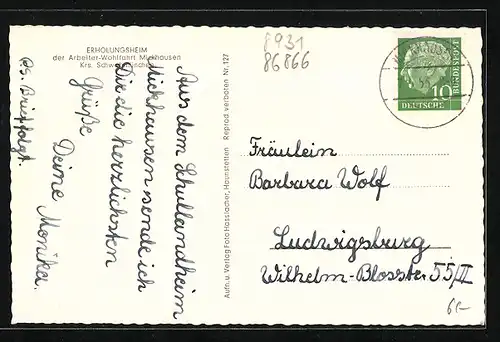 8931
86866
ERHOLUNGSHEIM
der Arbeiter-Wohlfahrt Mickhausen
Krs. Schwabmünchen
Aus dem Schullandheim
Mickhausen sende ich
Dir die herzlichsten
Grüße
Deine Monika.
Ps. Brief folgt.
Aufn. u. Verlag Foto Hasslacher, Haunstetten Reprod. verboten Nr. 127
10
DEUTSCHE
BUNDESPOST
Fräulein
Barbara Wolf
Ludwigsburg
Wilhelm-Blosstr. 55/II
6.-